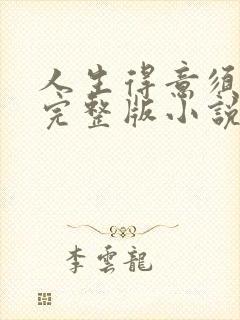 人生得意须
完整版小說
李雲龍